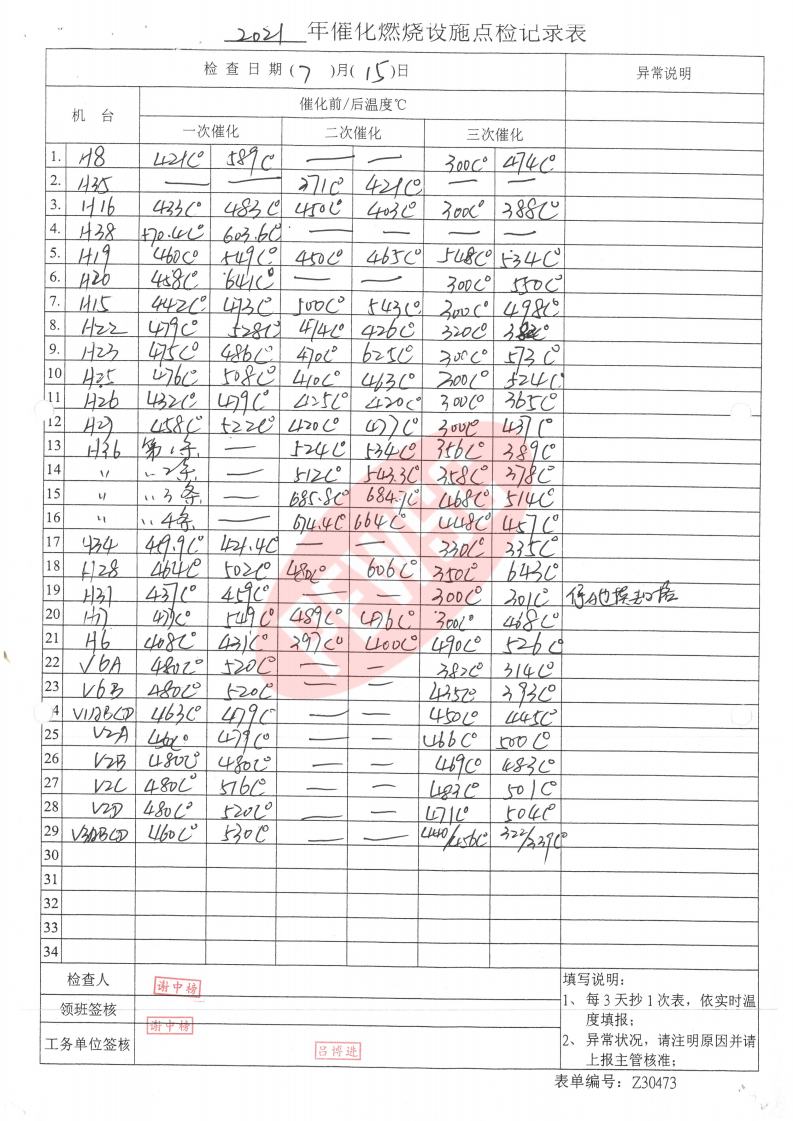 2021 年催化燃烧设施点检记录表
检 查 日 期 ( 7 )月( 15 )日 异常说明
机 台 催化前/后温度℃
一次催化 二次催化 三次催化
1. H8 421C° 589C° — — 300C° 474C°
2. H35 — — 371C° 421C° — —
3. H16 433C° 483C° 450C° 403C° 300C° 388C°
4. H38 570.4C° 603.6C° — — — —
5. H19 460C° 549C° 450C° 465C° 548C° 534C°
6. H20 458C° 641C° — — 300C° 550C°
7. H15 442C° 473C° 500C° 543C° 300C° 498C°
8. H22 479C° 528C° 474C° 426C° 320C°
9. H23 475C° 486C° 470C° 625C° 300C° 573C°
10 H25 476C° 508C° 410C° 463C° 300C° 524C°
11 H26 432C° 479C° 425C° 420C° 300C° 365C°
12 H27 458C° 522C° 420C° 477C° 300C° 437C°
13 H36 第1条 — 524C° 534C° 356C° 389C°
14 〃 〃2条 — 512C° 543.3C° 358C° 378C°
15 〃 〃3条 — 685.8C° 684.7C° 468C° 514C°
16 〃 〃4条 — 674.4C° 664C° 448C° 457C°
17 H34 419.9C° 421.4C° — — 330C° 335C°
18 H28 464C° 502C° 480C° 606C° 350C° 643C°
19 H31 437C° 459C° — — 300C° 301C°
20 H7 471C° 549C° 489C° 476C° 300C° 468C°
21 H6 408C° 431C° 397C° 400C° 490C° 526C°
22 V6A 480C° 520C° — — 382C° 314C°
23 V6B 480C° 520C° — — 435C° 393C°
4 V1ABCD 463C° 479C° — — 450C° 445C°
25 V2A 460C° 479C° — — 466C° 500C°
26 V2B 480C° 480C° — — 469C° 483C°
27 V2C 480C° 516C° — — 483C° 501C°
28 V2D 480C° 520C° — — 471C° 504C°
29 V3ABCD 460C° 530C° — — 440/456C° 322/339C°
30
31
32
33
34
检查人 谢中榜
领班签核 谢中榜
工务单位签核 吕博进
填写说明：
1、 每 3 天抄 1 次表，依实时温
度填报；
2、 异常状况，请注明原因并请
上报主管核准；
表单编号：Z30473